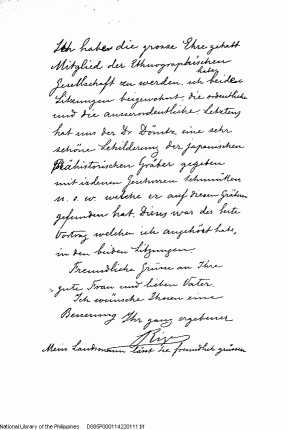 Ich habe die grosse Ehre gehabt
Mitglied der Ethnographischen
Gesellschaft zu werden. ich habe beide
Sitzungen beigewohnt, die ordentliche
und die ausserordentliche. Letztens
hat uns der Dr Dönitz eine sehr
schöne Schilderung der Japanischen
Prähistorischen Gräber gegeben
mit irdenen Schmücken
u. s. w. welche er auf diesen Gräbern
gefunden hat. Dieses war der beste
Vortrag welchen ich angehört habe,
in den beiden Sitzungen.
Freundliche Grüsse an Ihre
gute Frau und lieben Vater.
Ich wünsche Ihnen eine
Ihr ganz ergebener
Riz
Mein Landsmann lässt Sie freundlich grüssen
National Library of the Philippines D585P00011422011.tif